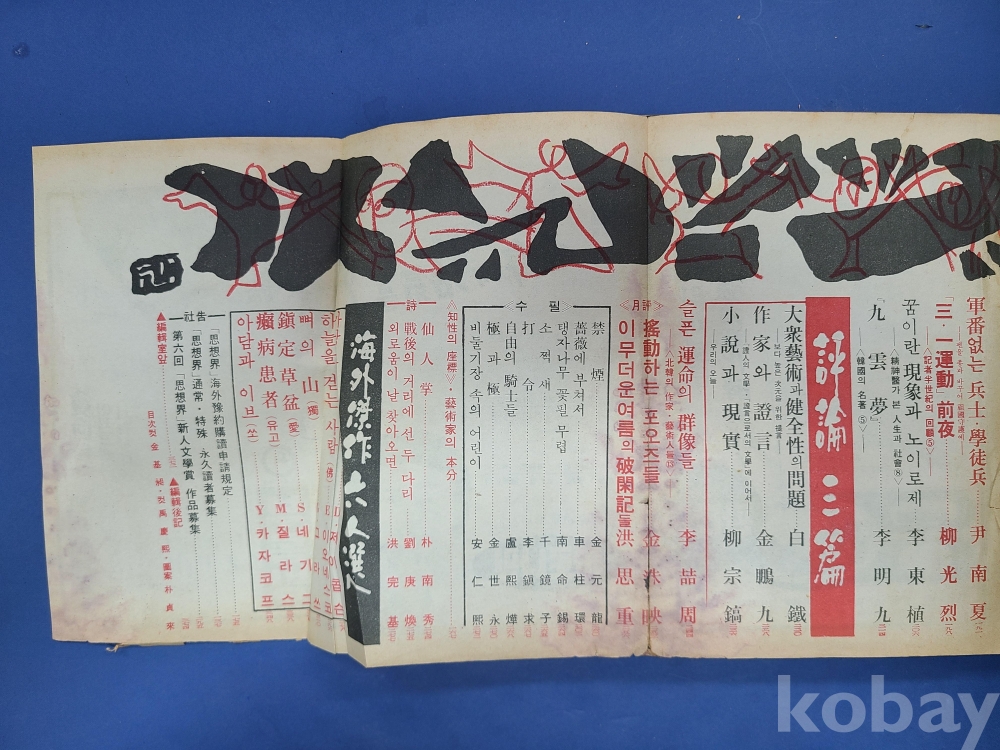 軍番없는 兵士·學徒兵 尹南夏
「三·一運動」前夜 柳光烈
<記者半世紀의 回顧⑤>
꿈이란 現象과 노이로제 李東植
<精神醫가 본 人生과 社會⑧>
『九雲夢』 李明九
韓國의 名著⑤
評論三篇
大衆藝術과 健全性의 問題 白鐵
보다 높은 次元을 위한 提言
作家와 證言 金鵬九
小說과 現實 柳宗鎬
우리의 오늘
슬픈 運命의 群像들 李喆周
<北韓의 作家·藝術人들⑬>
<月評>
搖動하는 포오즈들 金洙暎
이 무더운 여름의 破閑記들 洪思重
<수필>
禁煙 金元龍
薔薇에 부쳐서 車柱環
탱자나무 꽃필 무렵 南命錫
소쩍새 千鏡子
打令 李鎭求
自由의 騎士들 盧熙燁
極과 極 金世永
비둘기장 속의 어린이 安仁熙
<知性의 座標>·藝術家의 本分
詩
仙人掌 朴南秀
戰後의 거리에 선 두 다리 劉庚煥
외로움이 날 찾아오면 洪完基
海外傑作六人選
하늘을 걷는 사람(佛) E·이오네스코
뼈의 山(獨)
鎭定草盆(愛) M·질라스
癩病患者(유고)
아담과 이브(쏘) Y·카자코프
社告
「思想界」海外豫約購讀申請規定
「思想界」通常·特殊·永久讀者募集
第六回「思想界」新人文學賞 作品募集
▲編輯室앞 ▲編輯後記
kobay